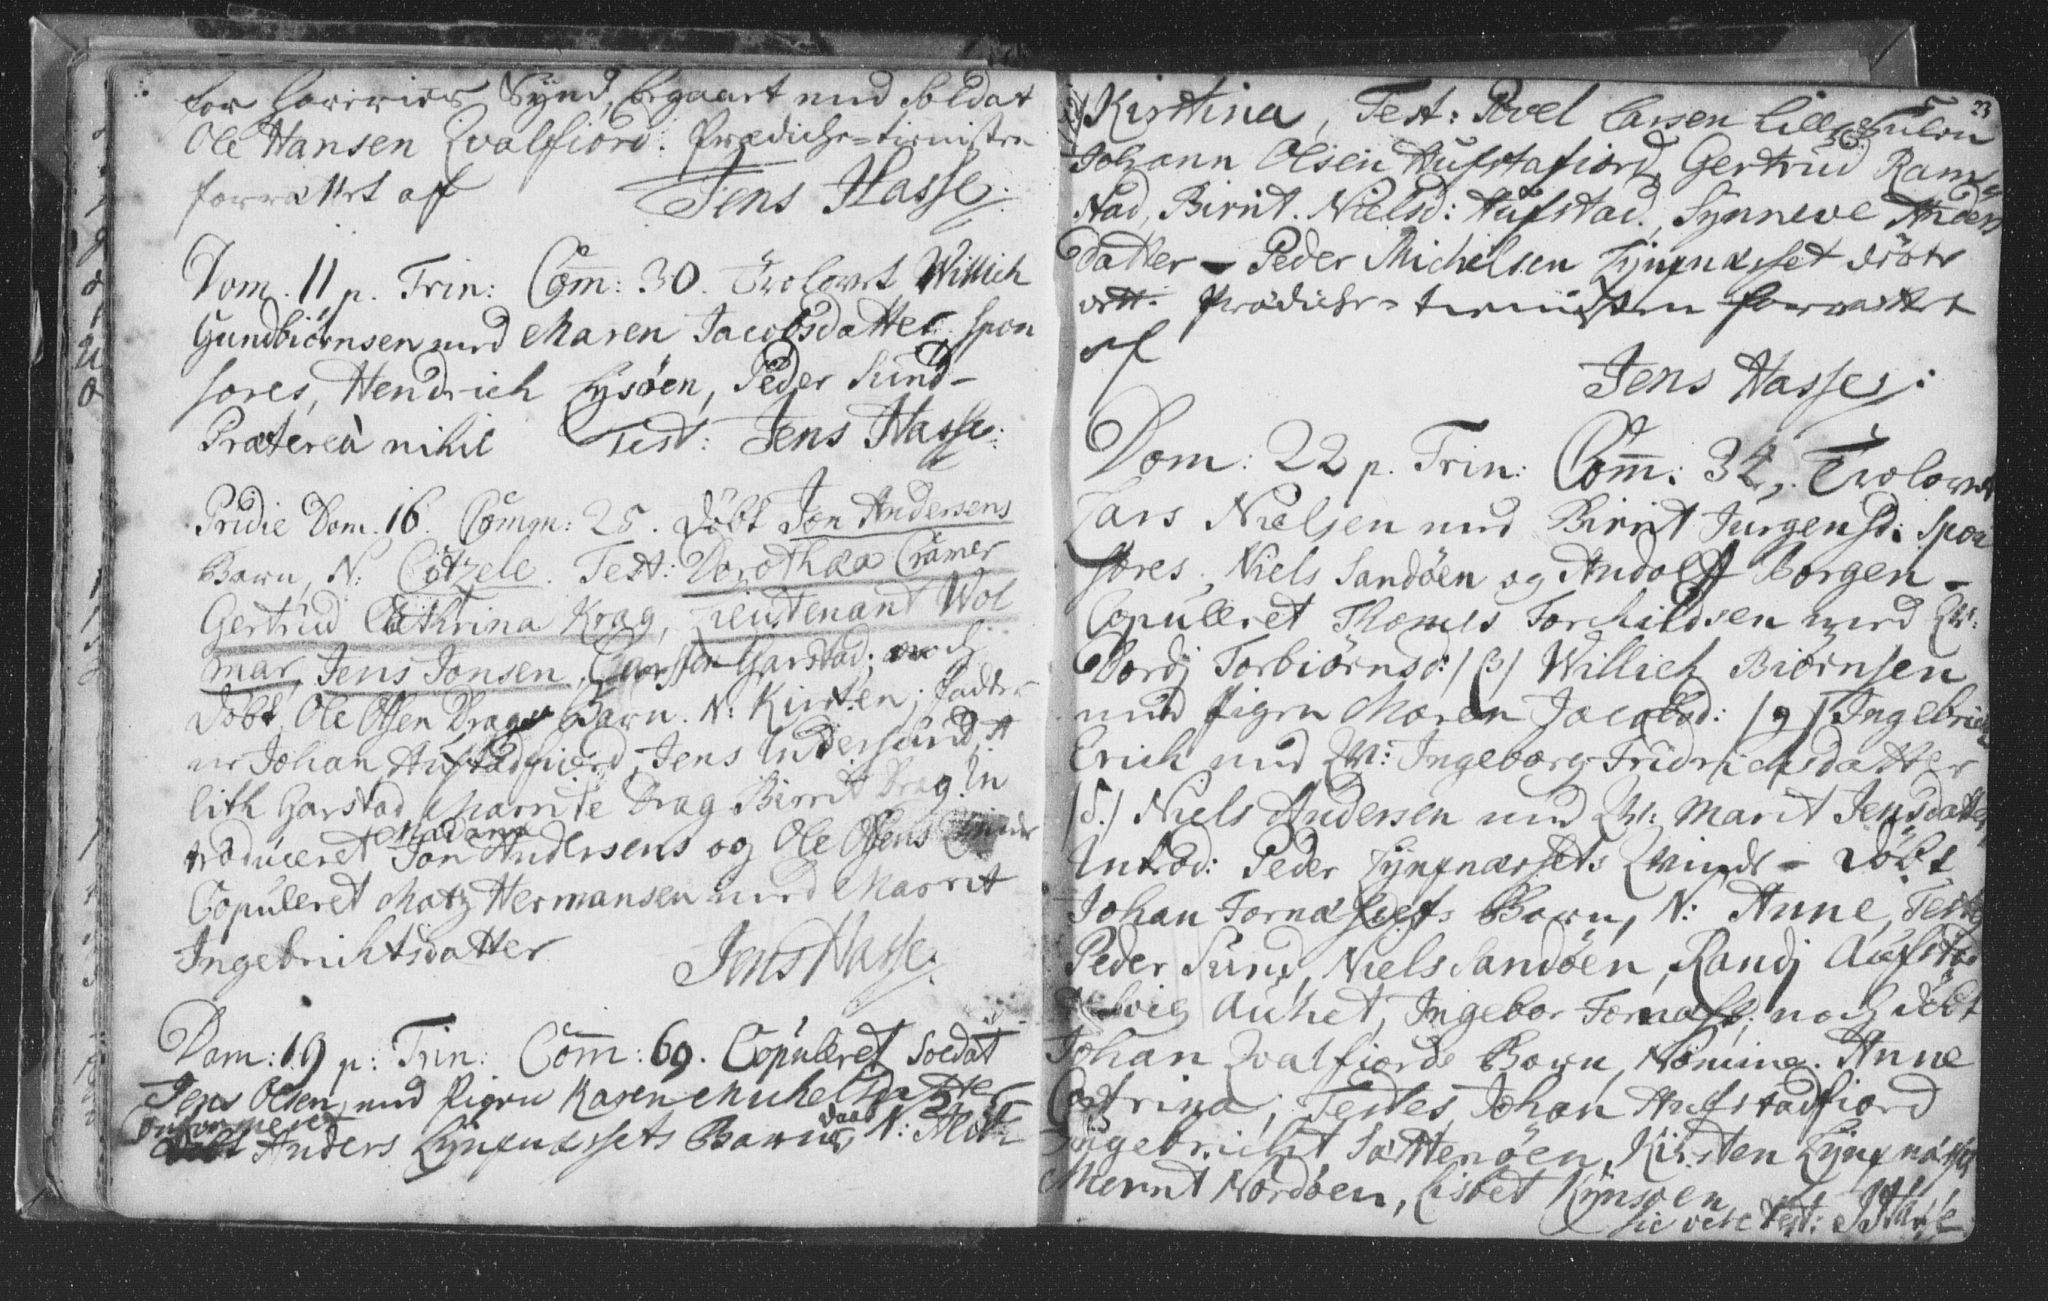 for Horeries Synd, begaaet med Soldat
Ole Hansen Qvalfiord. Prædiche-tienisten
forrættet af Jens Hasse.
Dom. 11 p. Trin: Com̄: 30. Trolovet Willich
Gundbiörnsen med Maren Jacobsdatter, spon
sores, Hendrich Lysöen, Peder Sund-
Prætereà nihil Test: Jens Hasse.
Pridie Dom. 16. Comm: 25. Döbt Jon Andersens
Barn, N: Citzele. Test: Dorothæa Cramer
Gertrud Cathrina Krag, Lieutenant Wol
mar, Jens Jonsen, Garstad, noch
Döbt Ole Olsen Drags Barn. N: Kirsten; fadde
re Johan Aufstadfiord, Jens Indersund, A
lith Garstad, Marrite Drag Birrit Drag. In
troduceret Madame Jon Andersens og Ole Olsens Qvinde
Copuleret Matz Hermansen med Marrit
Ingebrichtsdatter Jens Hasse.
Dom: 19 p: Trin: Com̄: 69. Copuleret Soldat
Jens Olsen med Pigen Karen Michelsdatter
Döbt Anders Lyngnæssets Barn N: Alith
23
Kirstina, Test: Povel Larsen Lille
Johann Olsen Aufstafiord, Gertrud Ram
stad, Birrit Nielsd: Aufstad, Synneve Anders
datter - Peder Michelsen Lyngnæsset
Prædiche-tienisten forrættet
af
Jens Hasse.
Dom: 22 p. Trin: Com̄: 34. Trolovet
Lars Nielsen med Birrit Jurgensd: Spon
sores. Niels Sandöen og Andolff Borgen -
Copuleret Thomes Torchildsen med Qv:
Bordj Torbiörnsd: /3/ Willich Biörnsen
med Pigen Maren Jacobsd: /9/ Ingebricht
Erich med Qv: Ingeborg Fridrichsdatter
/5./ Niels Andersen med Qv: Marit Jensdatter
Introd: Peder Lyngnæssets Qvinde - Döbt
Johan Fornæssets Barn, N: Anne, Testes
Peder Sund, Niels Sandöen, Randj Aufstad
Auket, Ingebor Fornæss; noch döbt
Johan Qvalfiords Barn, Nomine. Anne
Catrina; Testes Johan Aufstadfiord
Ingebricht Sættenöen, Kirsten Lyngnæsset
Merrit Nordöen, Lisbet Kynsöen
sic vere test: J Hasse